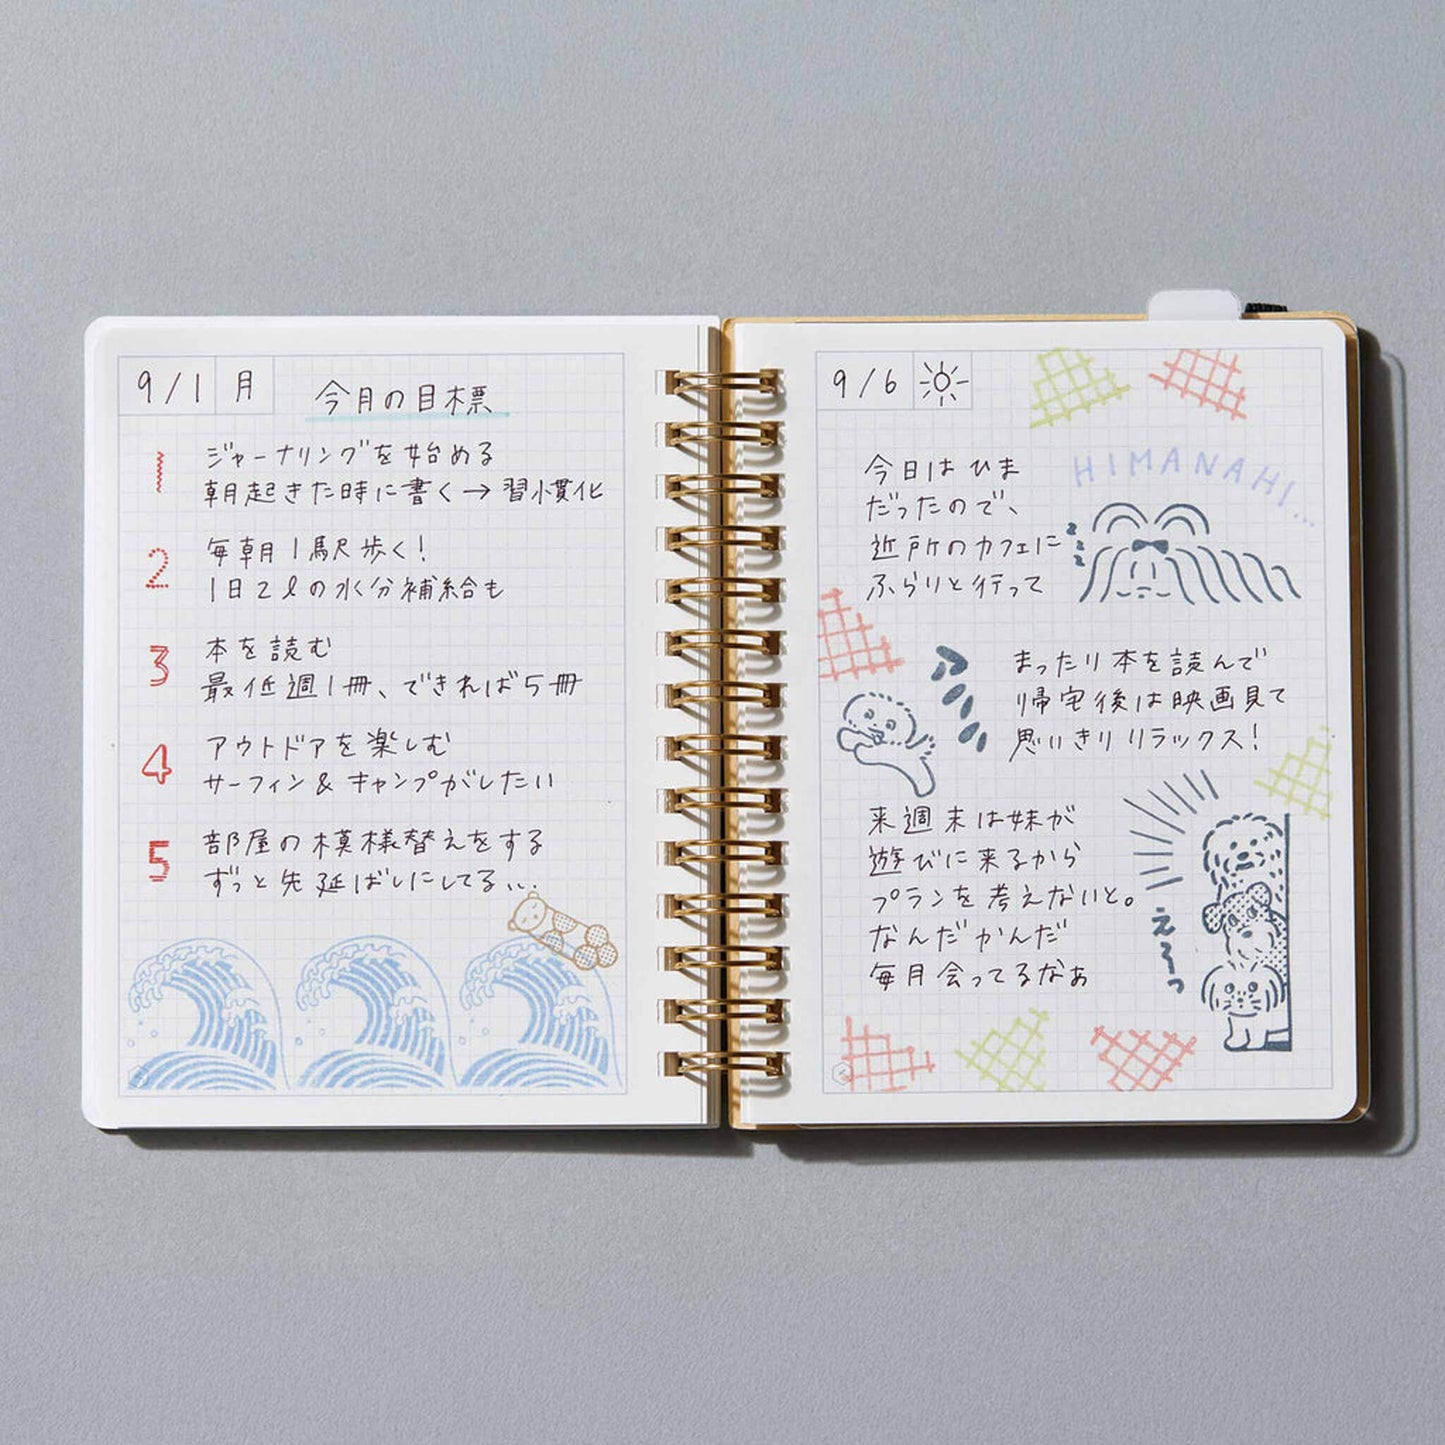 9/1 月
今月の目標
1 ジャーナリングを始める
朝起きた時に書く→習慣化
2 毎朝1駅歩く!
1日2lの水分補給も
3 本を読む
最低週1冊、できれば5冊
4 アウトドアを楽しむ
サーフィン&キャンプがしたい
5 部屋の模様替えをする
ずっと先延ばしにしてる...
9/6
HIMANAHI...
今日はひま
だったので、
近所のカフェに
ふらりと行って
zzz
まったり本を読んで
帰宅後は映画見て
思いきりリラックス!
来週末は妹が
遊びに来るから
プランを考えないと。
なんだかんだ
毎月会ってるなぁ
え〜っ